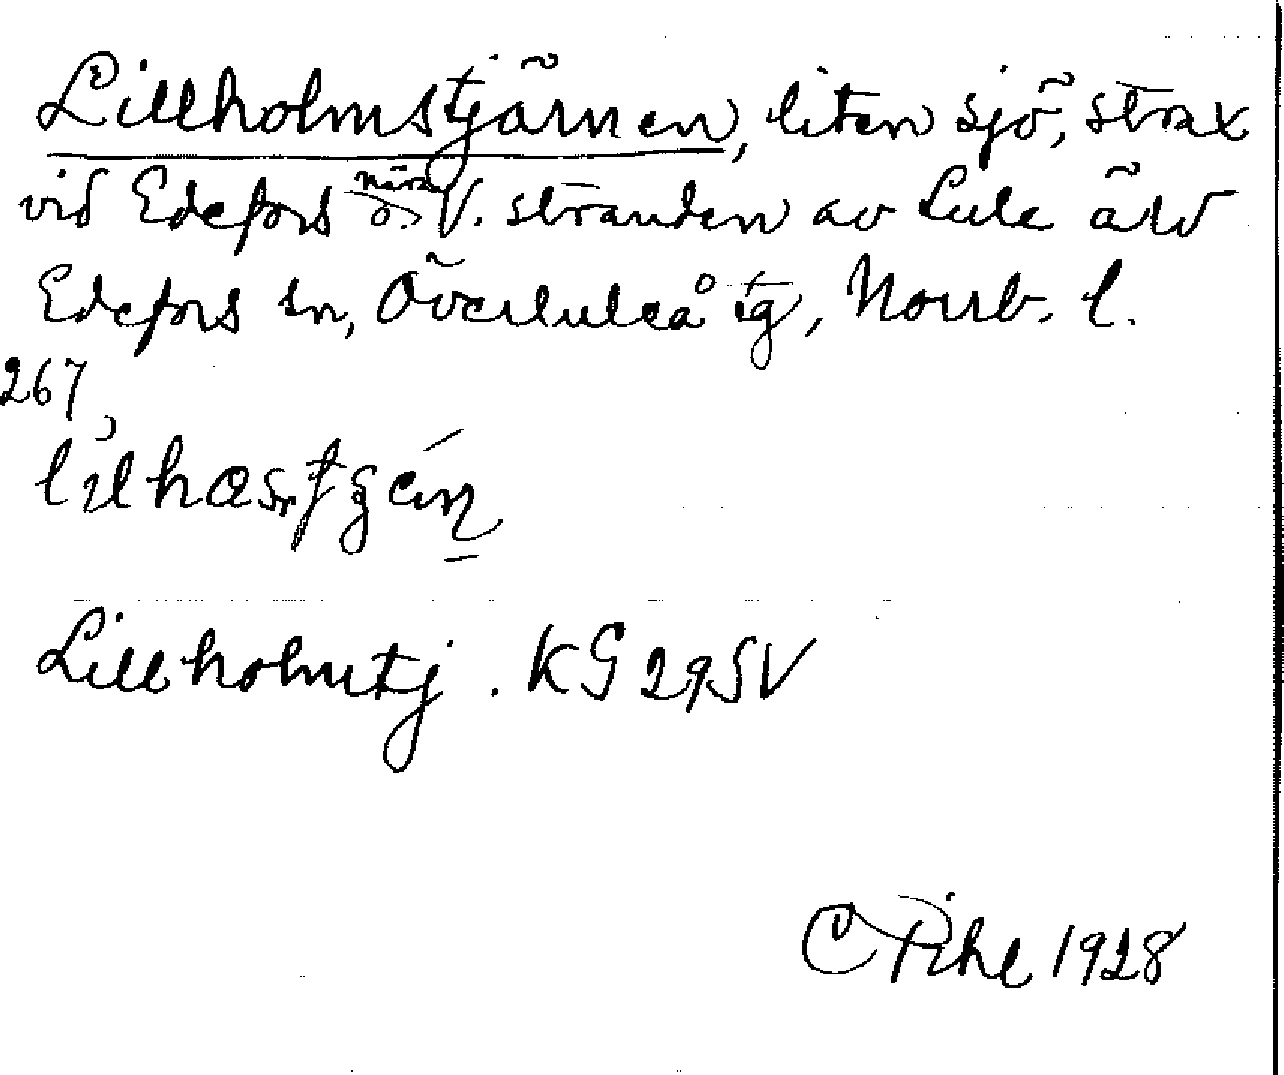 Lillholmstjärnen, liten sjö, strax
vid Edefors o. nära V. stranden av Lule älv
Edefors sn, Överluleå tg, Norrb. l.
267
Lillholmtj. KG 29 SV
C Pihl 1928